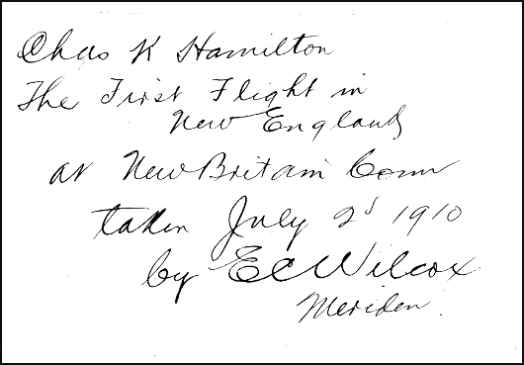 Chas K Hamilton
The First Flight in
New England
at New Britain Conn
taken July 2d 1910
by E C Wilcox
Meriden.